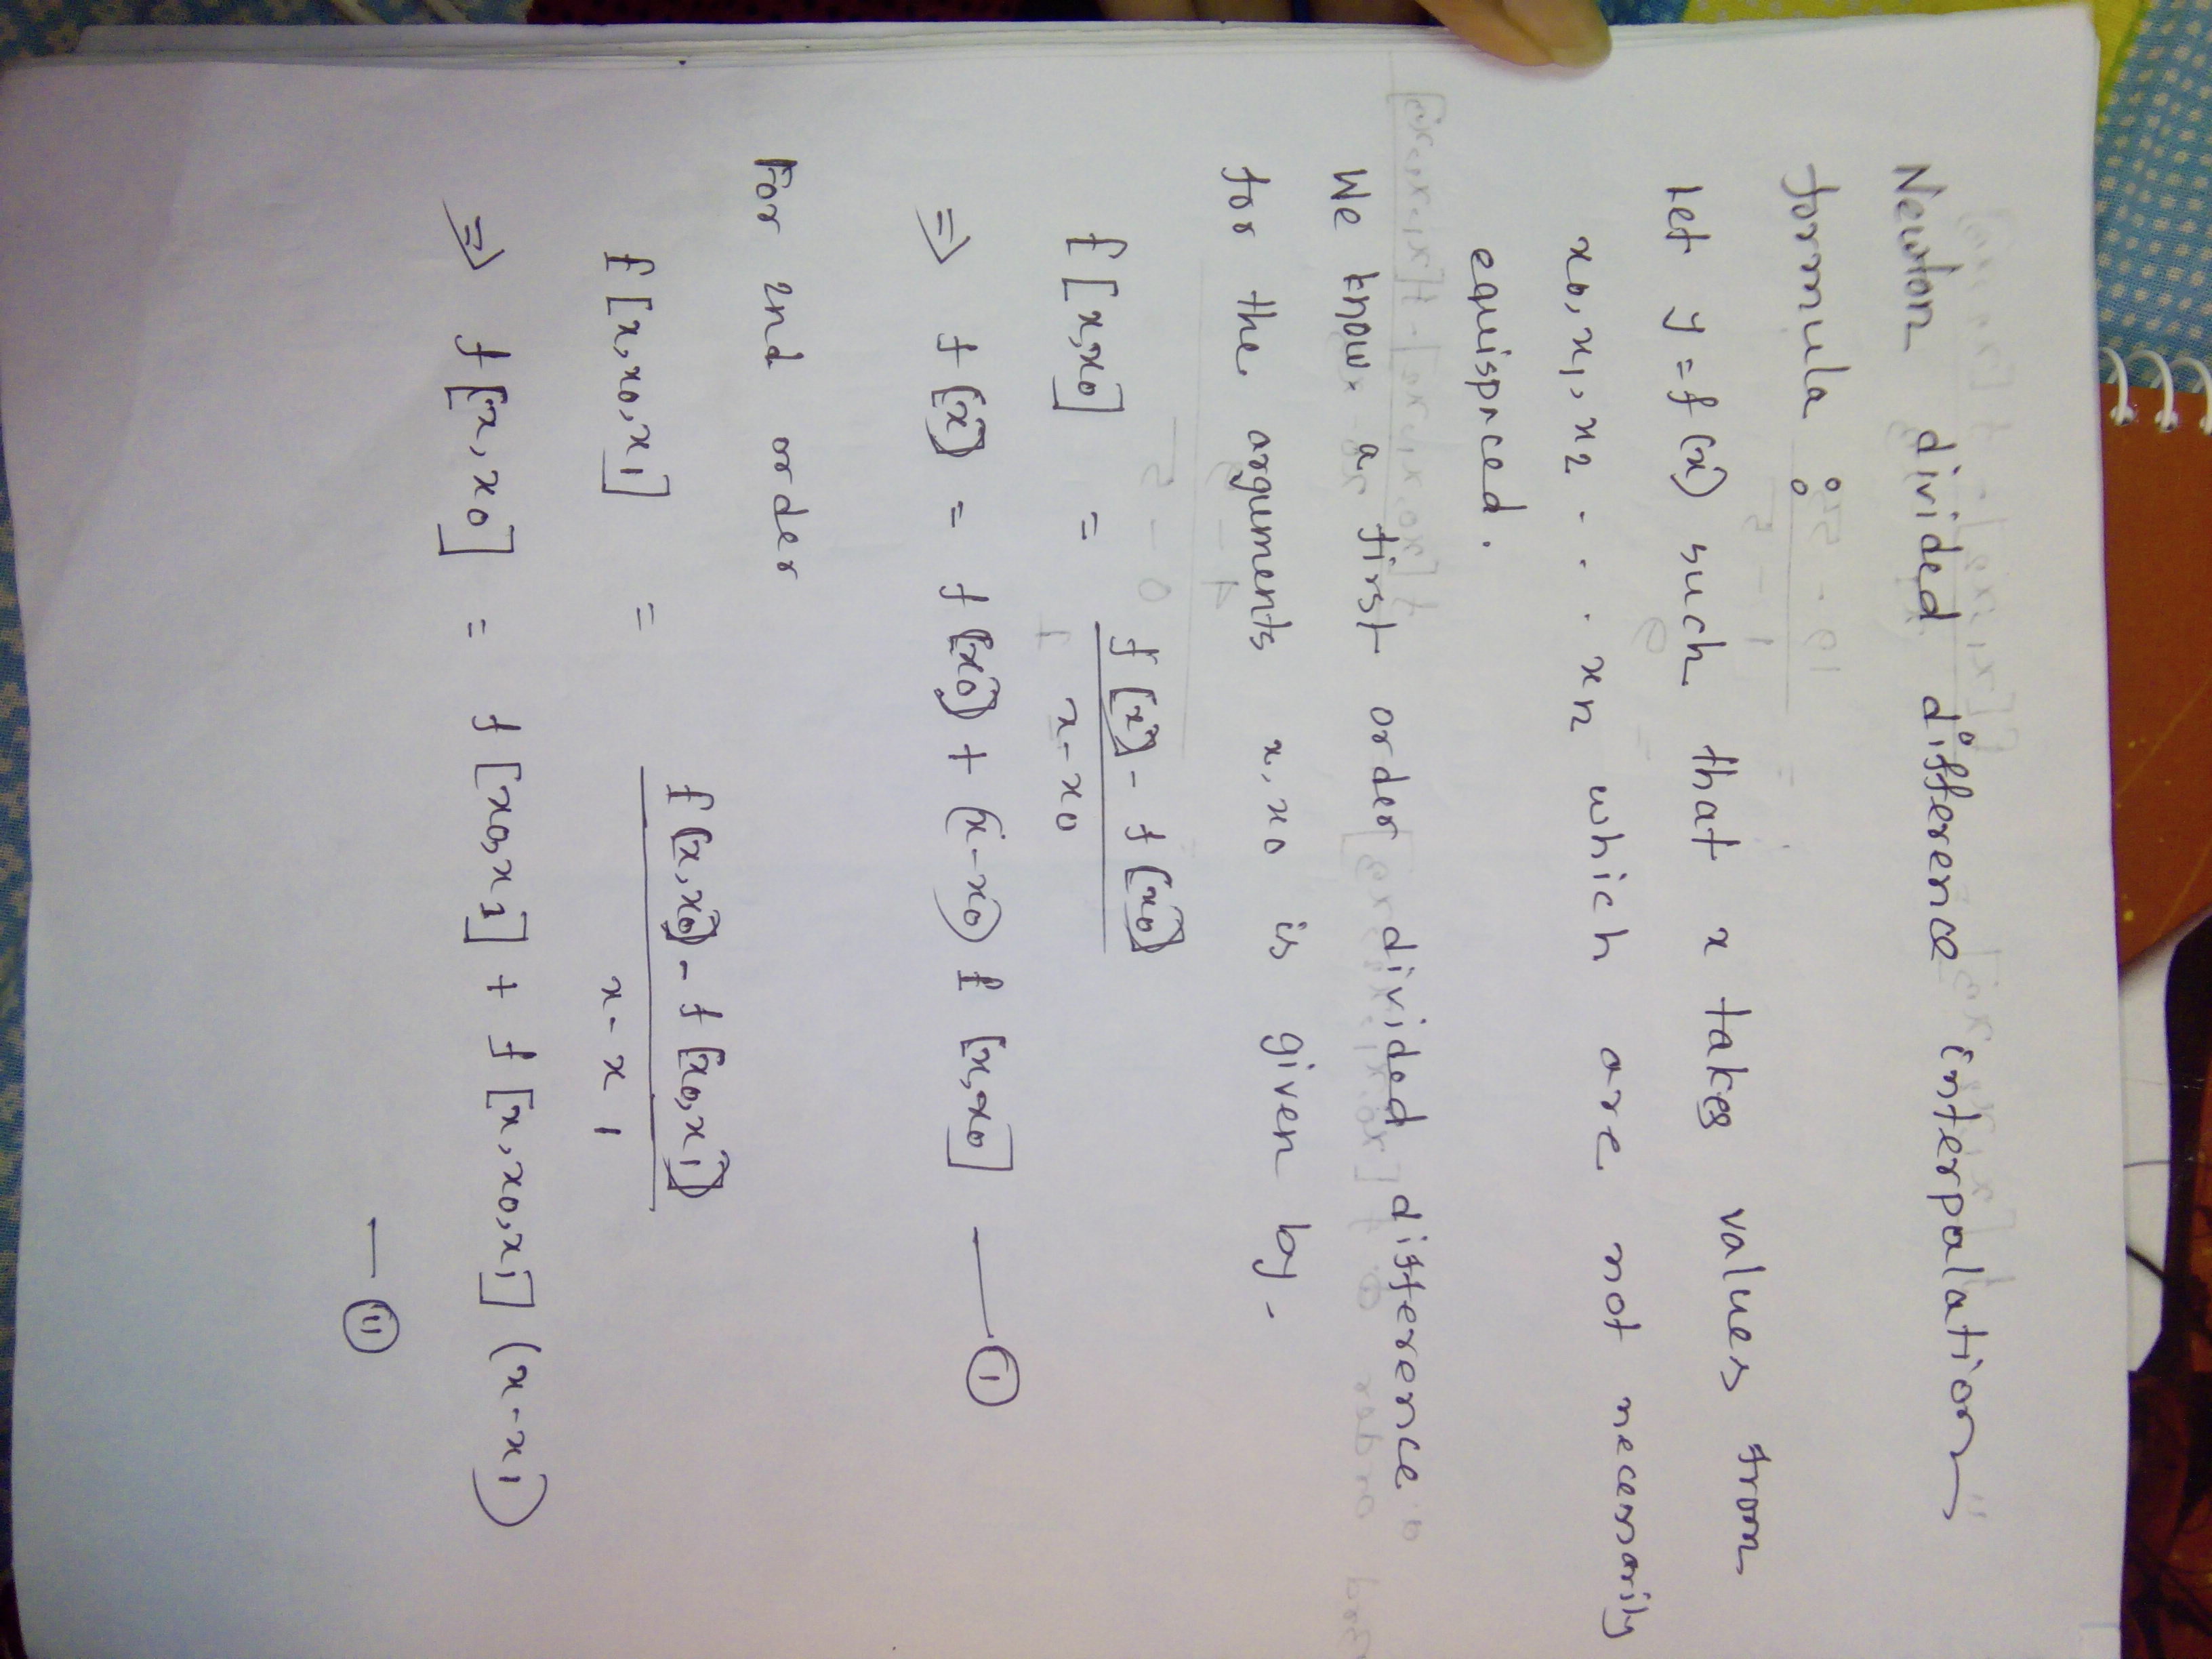 Newton divided difference interpalation
formula :
Let y = f(x) such that x takes values from
x0, x1, x2 . . . xn which are not necessarily
equispaced.
We know a first order divided difference
for the arguments x, x0 is given by -
f[x, x0] = f[x] - f[x0]
x - x0
⇒ f[x] = f[x0] + (x - x0) f [x, x0] — (i)
For 2nd order
f [x, x0, x1] = f[x, x0] - f [x0, x1]
x - x1
⇒ f [x, x0] = f [x0, x1] + f [x, x0, x1] (x - x1)
— (ii)